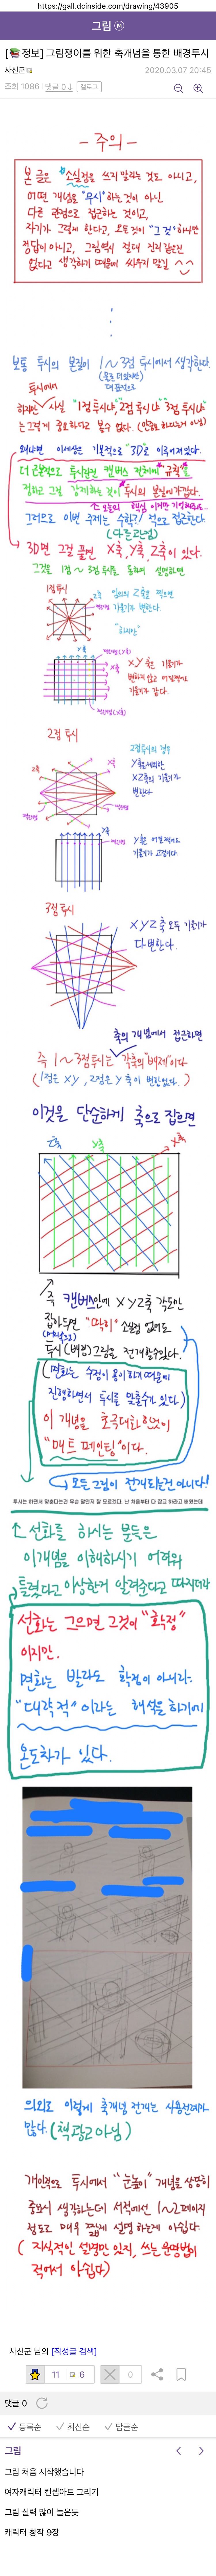 https://gall.dcinside.com/drawing/43905
그림 ⓜ
[📚정보] 그림쟁이를 위한 축개념을 통한 배경투시
사신군
2020.03.07 20:45
조회 1086
댓글 0
갤로그
- 주의 -
본 글은 소실점을 쓰지 말라는 것도 아니고,
어떤 개념을 "무시"하는 것이 아닌
다른 관점으로 접근하는 것이고,
자기가 그렇게 한다고, 모든 것이 "그것" 하나만
정답이 아니고, 그림 역시 절대 진리 같은건
없다고 생각하기 때문에 싸우지 말길 ^^
보통 투시의 본질이 1~3점 투시에서 생각한다
투시에서
하지만 사실 "1점 투시나", 2점 투시나 "3점 투시나"
는 그렇게 중요하다고 볼수 없다.
왜냐하면 이세상은 기본적으로 "3D로 이루어져 있다.
더 근본적으로 투시원은 캔버스 전체에 "규칙"을
정하고 그걸 강제하는 것이 투시의 본질에 가깝다.
그러므로 이번 주제는 수학?/ 적으로 접근한다.
3D면 그걸 끌면 X축, Y축, Z축이 있다.
그것을 1점 ~ 3점 투시를 통하여 설명하면
1점 투시
Z축
기울기가 변한다.
"하지만"
Y축
X축
X,Y 축은 기울기가
변하지 않고
기울기가 같다.
2점 투시
2점투시의 경우
Y축을 제외한
XZ축의 기울기가
변한다.
Z축
X축
Y축은
기울기가 고정이다.
3점 투시
X Y Z 축 모두 기울기가
다 변한다.
축의 개념에서 접근하면
즉 1~3점 투시는 각축의 "배제"이다
(1점은 XY, 2점은 Y축이 변함없다.)
이것을 단순하게 축으로 잡으면
Z축
Y축
X축
즉 캔버스안에 X Y Z축 각도만
잡아두면 "따히" 소실점 없어도
투시 (배경) 그림을 전개가능하다.
(면화는 수정이 용이하기 때문에
진행하면서 투시를 맞출수가 있다.)
이 개념을 호극대화한것이
"매트 페인팅"이다.
모든 그림이 전개되는건 아니다!
투시는 하면서 맞춘다는건 무슨 말인지 잘 모르겠다. 난 처음부터 다 잡고 하라고 배웠는데
선화를 하시는 분들은
이개념을 이해하시기 어려워
틀렸다고 이상한거 알려준다고 따지던데
선화는 그으면 그것이 "확정"
이지만.
면화는 발라도 확정이 아니라.
"대략적" 이라는 해석을 하기에
온도차가 있다.
의외로 이렇게 축개념 전개는 사용전례가
많다. (책광고아님)
개인적으로 투시에서 "눈높이" 개념을 상당히
중요시 생각하는데 서적에선 1~2페이지
정도로 매우 짧게 설명하는게 아쉽다.
(지식적인 설명만 있지, 쓰는 운영법이
적어서 아쉽다)
사신군 님의 [작성글 검색]
11
6
0
댓글 0
등록순
최신순
답글순
그림
그림 처음 시작했습니다
여자캐릭터 컨셉아트 그리기
그림 실력 많이 늘은듯
캐릭터 창작 9장